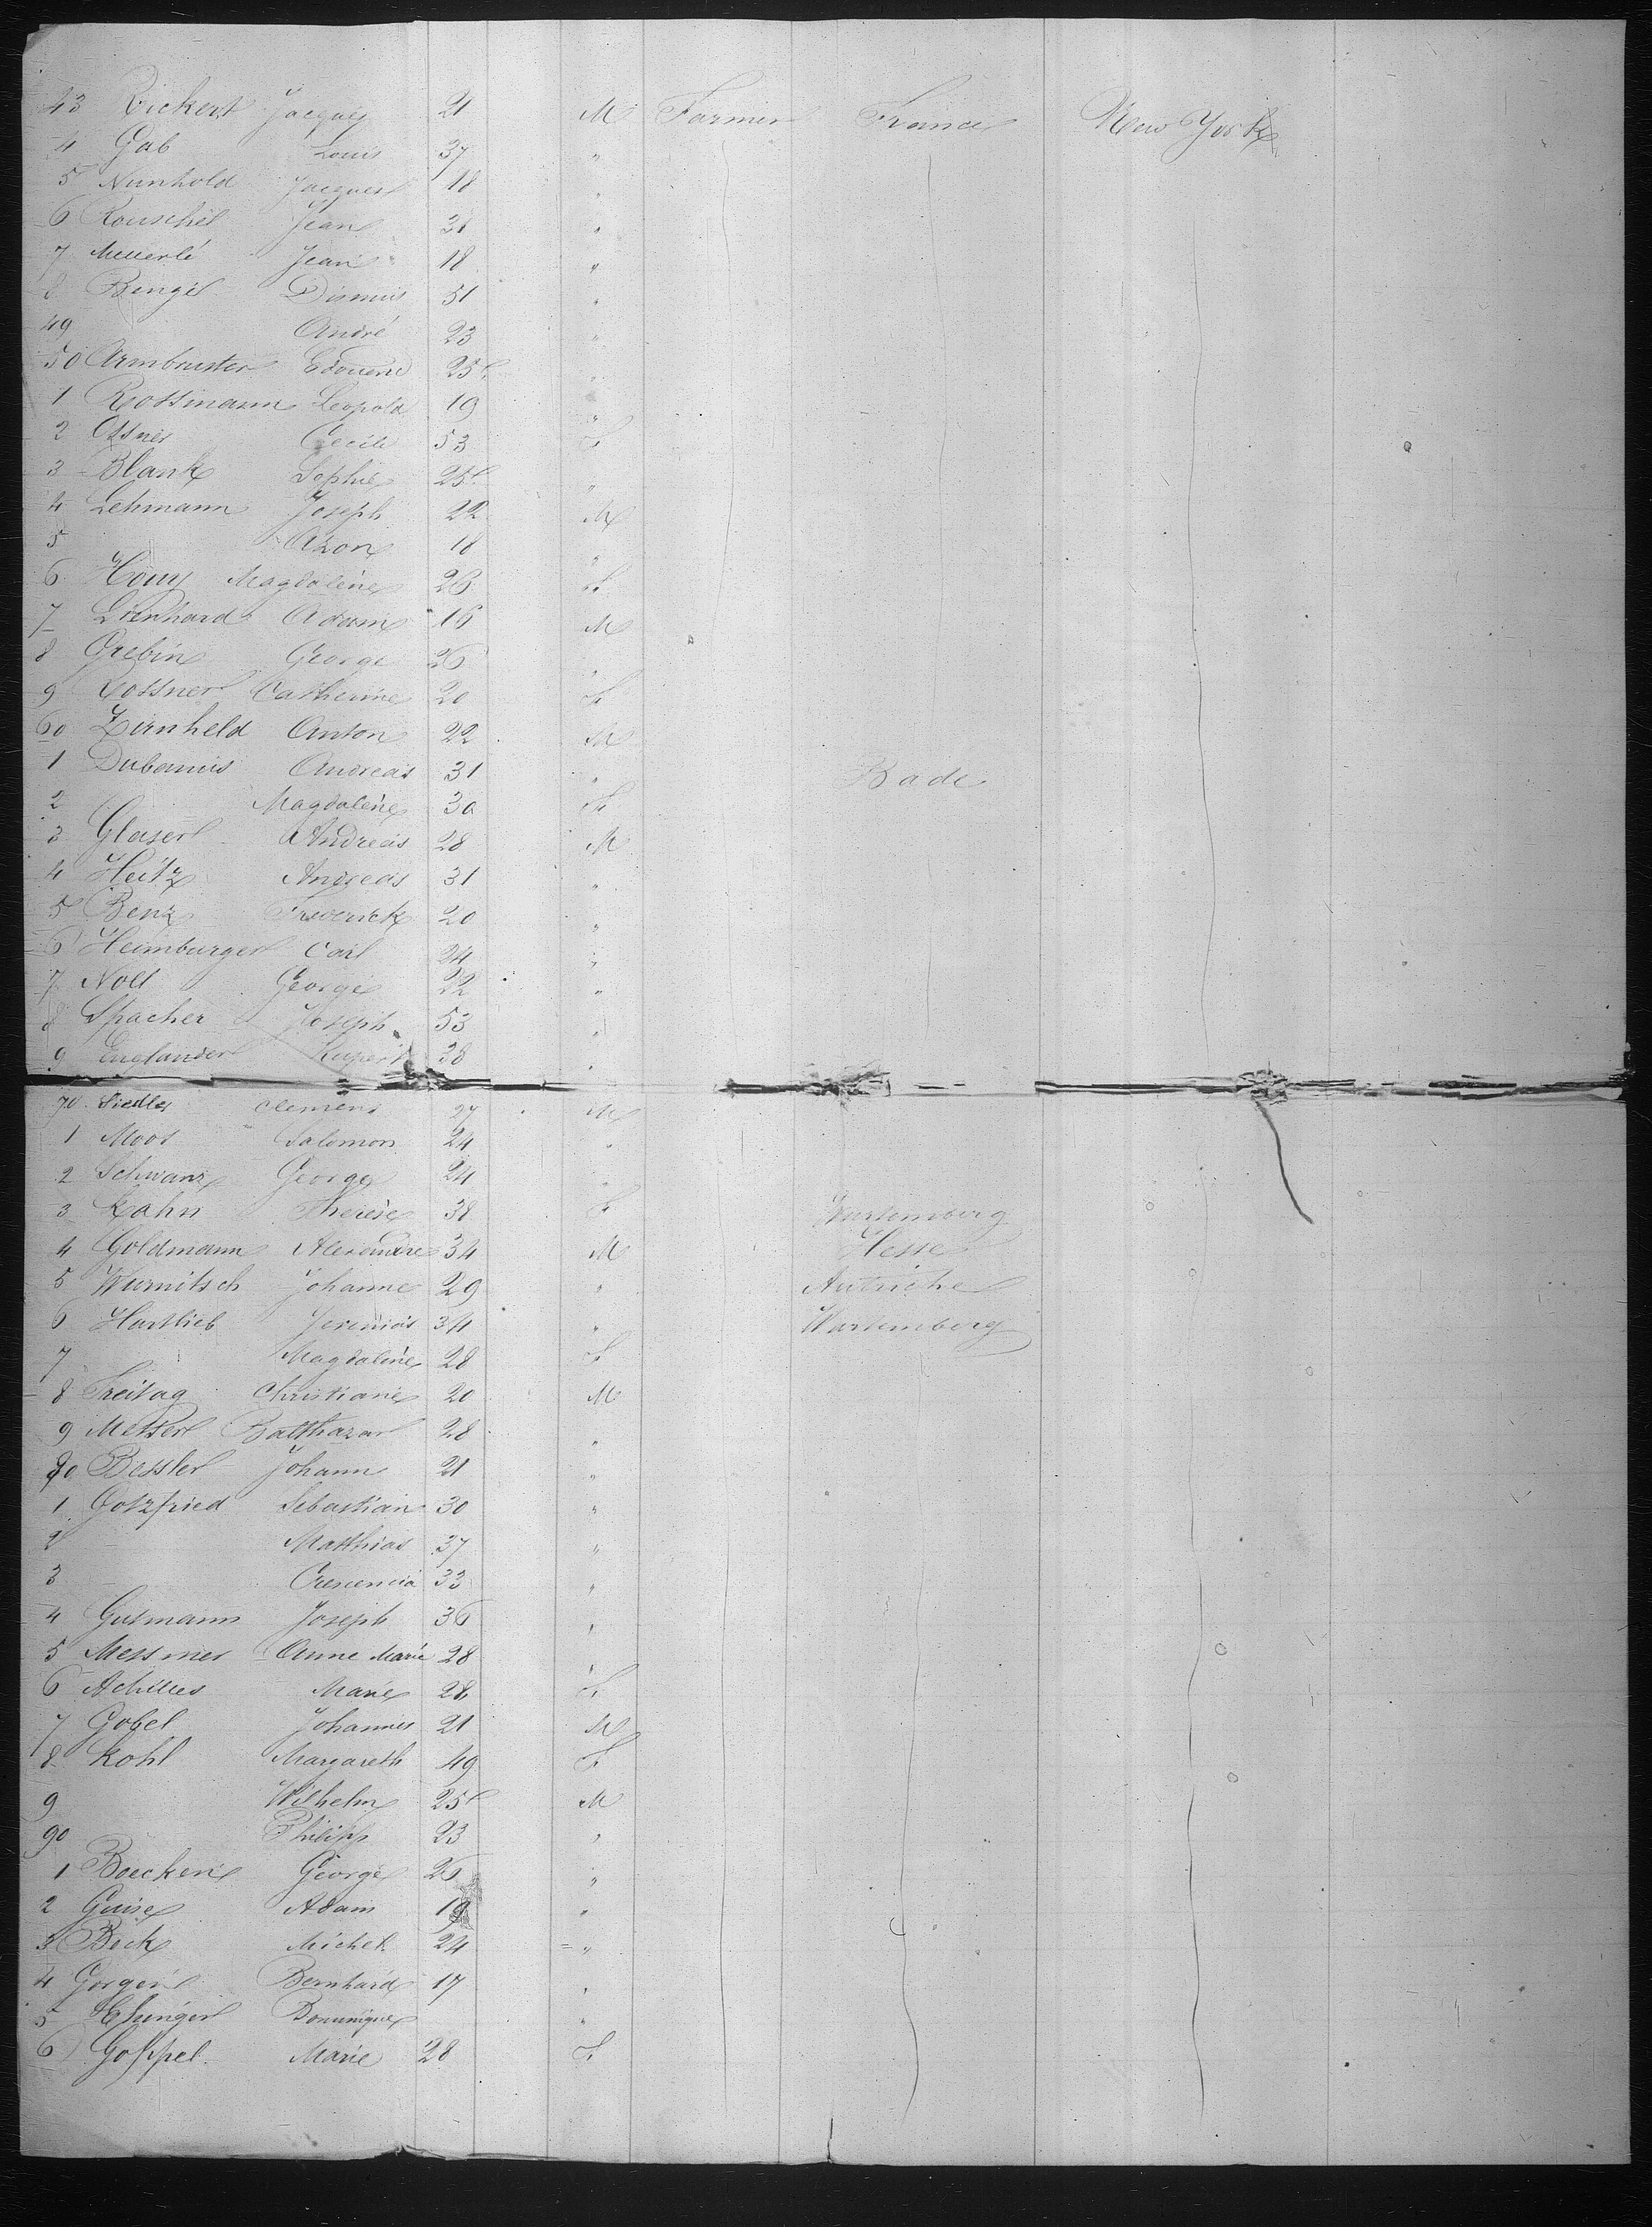 43 Rickert Jacques 21 M Farmer France New York
4 Gab Louis 37 "
5 Nunhold Jacques 18 "
6 Rouschel Jean 31 "
7 Meuerlé Jean 18 "
8 Bengel 51 "
49 André 23 "
50 Armbruster Edouard 25 "
1 Rossmann Leopold 19 "
2 Ossner Cecile 53 F
3 Blank Sophie 25 "
4 Lehmann Joseph 22 M
5 Azon 18 "
6 Houy Magdalène 26 F
7 Lienhard Adam 16 M
8 Grebin George 26 "
9 Rossner Catherine 20 F
60 Zirnheld Anton 22 M
1 Dubanuis Andreas 31 " Bade
2 Magdalène 30 F
3 Glaser Andreas 28 M
4 Heitz Andreas 31 "
5 Benz Frederick 20 "
6 Heimburger Carl 24 "
7 Nolt George 22 "
8 Spacher Joseph 53 "
9 Englander Rupert 38 "
70 Siedler Clemens 27 M
1 Moos Salomon 24 "
2 Schwanz George 24 "
3 Kahn Therèse 38 F Wurtemberg
4 Goldmann Alexandre 34 M Hesse
5 Wurnitsch Johanne 29 " Autriche
6 Hartlieb Jeremias 34 " Wurtemberg
7 Magdalène 28 F
8 Freitag Christiane 20 M
9 Metser Balthazar 28 "
80 Bessler Johann 21 "
1 Gotzfried Sebastian 30 "
2 Matthias 37 "
3 Crescencia 33 "
4 Gutmann Joseph 36 "
5 Messmer Anne Marie 28 "
6 Achilles Marie 28 F
7 Gobel Johannes 21 M
8 Kohl Margareth 49 F
9 Wilhelm 25 M
90 Philipp 23 "
1 Boeckene George 26 "
2 Guise Adam 19 "
3 Beck Michel 24 "
4 Gorger Bernhard 17 "
5 Ehinger Dominique "
6 Goppel Marie 28 F